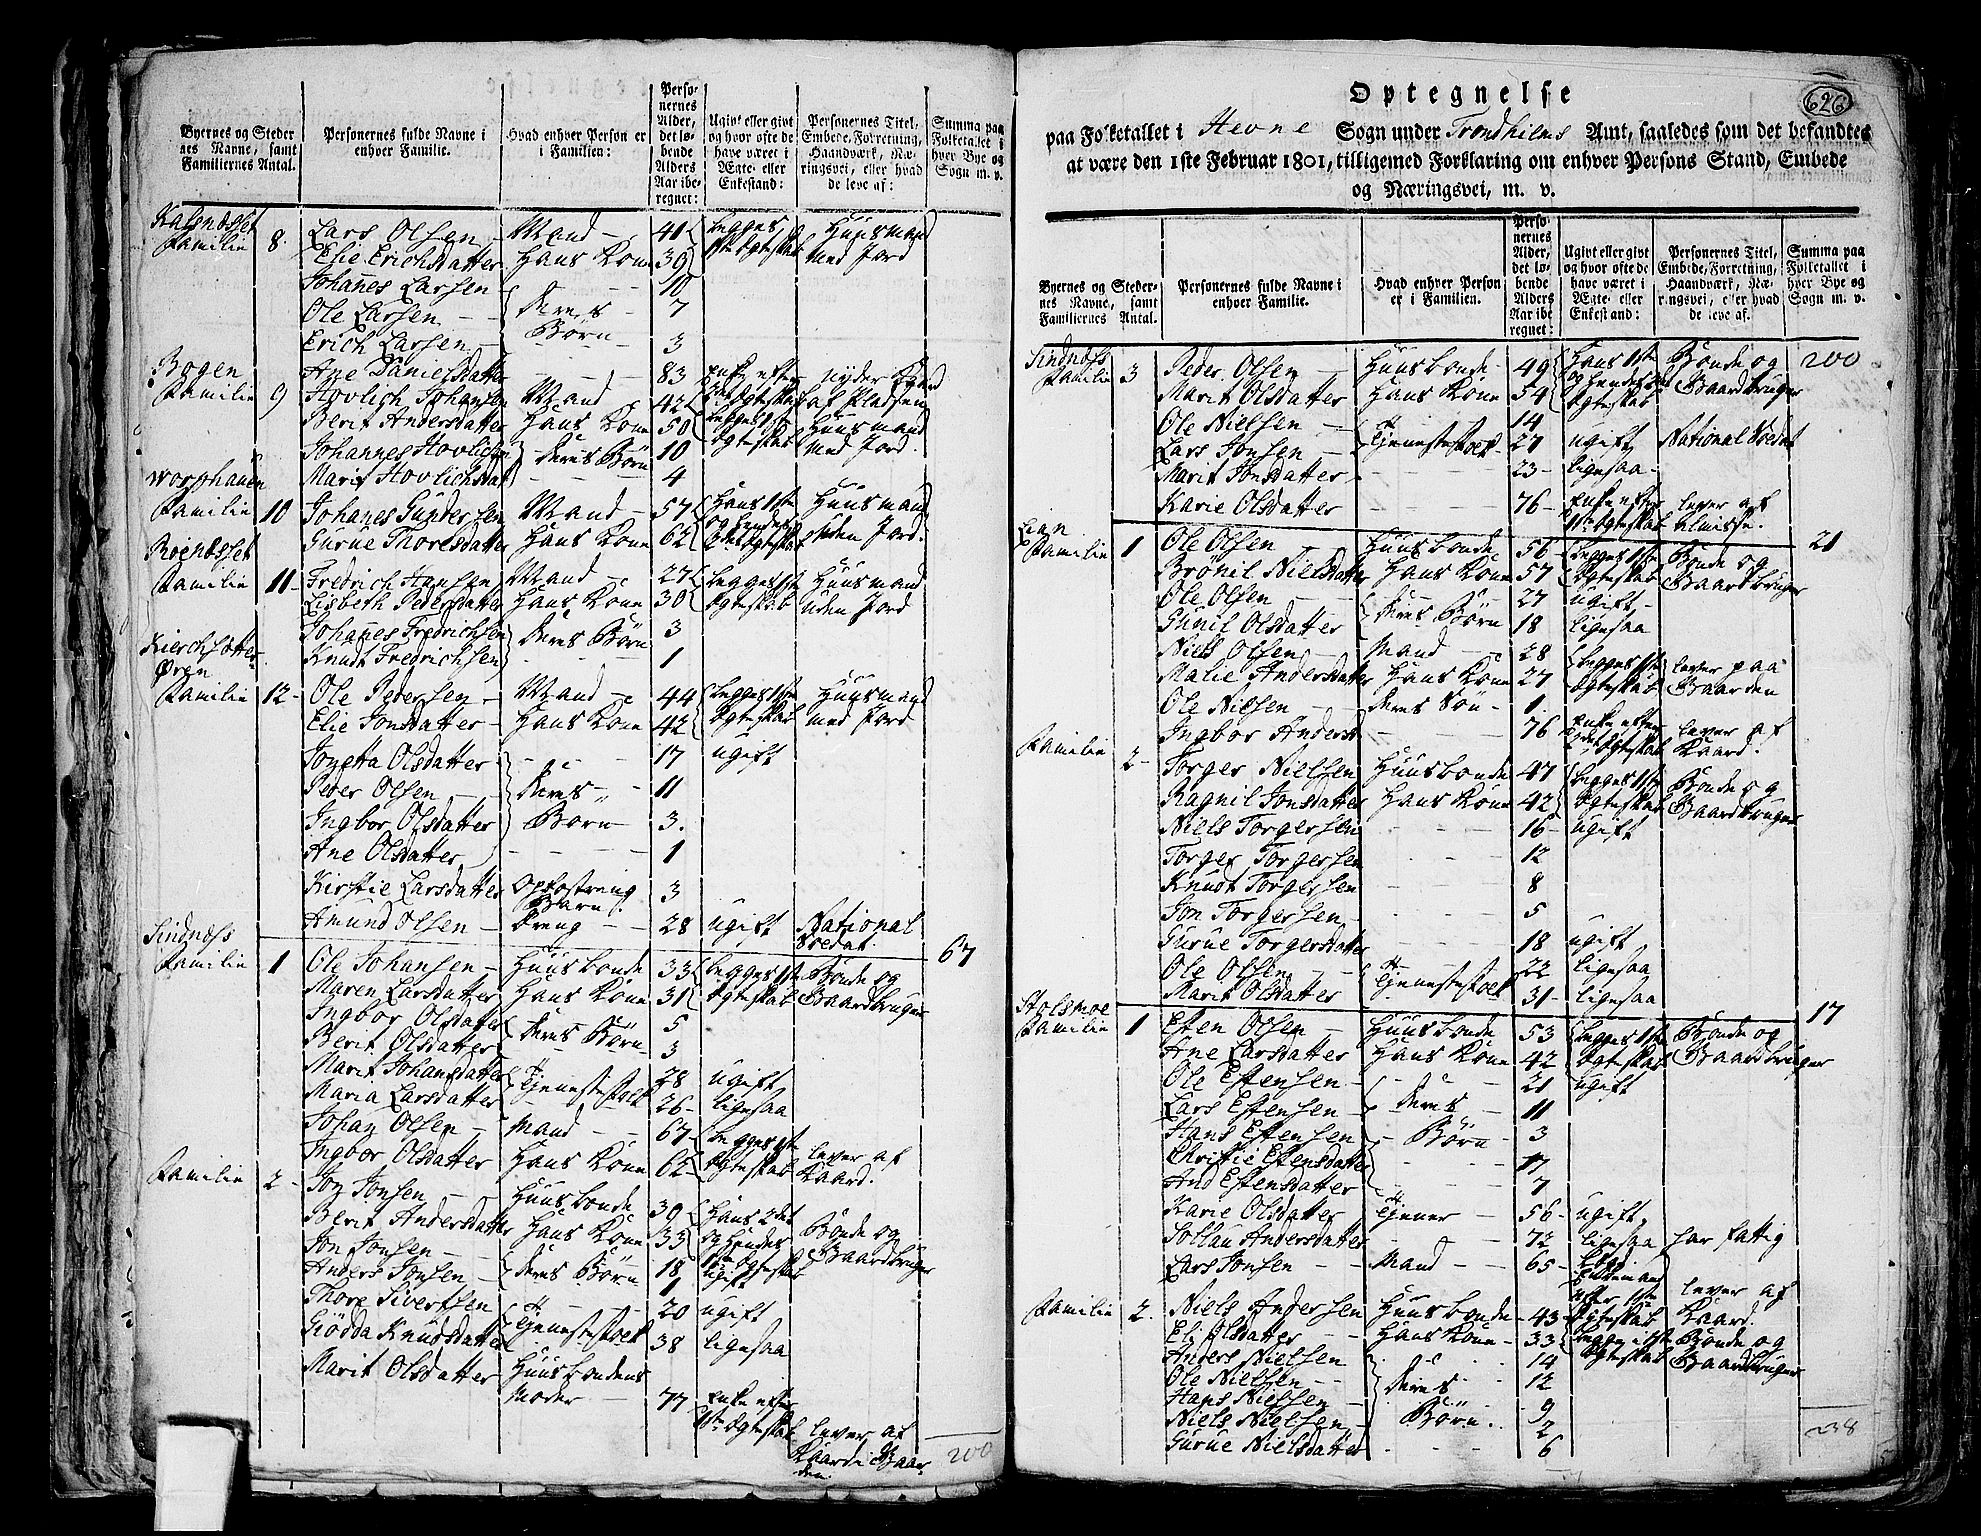 Byernes og Steder
nes Navne, samt
Familiernes Antal.
Personernes fulde Navne i
enhver Familie.
Hvad enhver Person er
i Familien:
Perso-
nernes
Alder,
det lø-
bende
Alders
Aar ibe
regnet:
Ugivt eller givt
og hvor ofte de
have været i
Ægte- eller
Enkestand:
Personernes Titel,
Embede, Forretning,
Haandværk, Næ-
ringsvei, eller hvad
de leve af:
Summa paa
Folketallet i
hver Bye og
Sogn m. v.
Familie 8. Lars Olsen Mand 41 begges Huusmand
Elie Erichsdatter Hans Kone 39 1ste Ægteskab med Jord
Johañes Larsen 10
Ole Larsen Deres 7
Erich Larsen Børn 3
Bogen Ane Danielsdatter 83 enke efter nyder Kaard
Familie 9 Hovlich Johansen Mand 42 af Pladsen
Berit Andersdatter Hans Kone 50 begges Huusmand
Johannes Hovlichsen Deres Børn 10 Ægteskab med Jord.
Marit Hovlichsdat 4
Familie 10 Johanes Gundersen Mand 57 Hans 1ste Huusmand
Gurue Thoresdatter Hans Kone 62 og hendes uden Jord.
Familie 11 Fredrich Hansen Mand 27 begges 1ste Huusmand
Lisbeth Pedersdatter Hans Kone 30 Ægteskab uden Jord
Johañes Fredrichsen Deres Børn 3
Knudt Fredrichsen 1
Kierchsætter
Øren
Familie 12 Ole Pedersen Mand 44 begges 1ste Huusmand
Elie Jonsdatter Hans Kone 42 Ægteskab med Jord
Jonetta Olsdatter 17 ugift
Peder Olsen Deres 11
Ingbor Olsdatter Børn 3.
Ane Olsdatter 1
Kirstie Larsdatter Opfostrings Barn 3
Amund Olsen Dreng 28 ugift National Soldat.
Sindnæss 67
Familie 1 Ole Johansen Huusbonde 33 begges 1ste Bonde og
Maren Larsdatter Hans Kone 31 Ægteskab Gaardbruger
Ingbor Olsdatter Deres Børn 5
Berit Olsdatter 3
Marit Johansdatter Tjenestefolk 28 ugift
Maria Larsdatter 26 ligesaa
Johan Olsen Mand 67 begges 1ste lever af
Ingbor Olsdatter Hans Kone 62 Ægteskab Kaard.
Familie 2 Jon Jonsen Huusbonde 30 Hans 2det
Berit Andersdatter Hans Kone 33 og hendes Bonde og
Jon Jonsen Deres Børn 18 1ste Ægteskab Gaardbruger
Anders Jonsen 1 ugift
Thore Sivertsen Tjenestefolk 20 ugift
Giødda Knudsdatter 38 ligesaa
Marit Olsdatter Huusbondens
Moder 77 enke efter
1ste Ægteskab lever af
Kaard i Gaar-
den.
200
Optegnelse
626
paa Folketallet i Hevne Sogn under Trondhiems Amt, saaledes som det befandtes
at være den 1ste Februar 1801, tilligemed Forklaring om enhver Persons Stand, Embede
og Næringsvei, m. v.
Byernes og Steder-
nes Navne, samt
Familiernes Antal.
Personernes fulde Navne i
enhver Familie.
Hvad enhver Person
er i Familien.
Perso-
nernes
Alder,
det lø-
bende
Alders
Aar ibe
regnet:
Ugivt eller givt
og hvor ofte de
have været i
Ægte- eller
Enkestand:
Personernes Titel,
Embede, Forretning,
Haandværk, Næ-
ringsvei, eller hvad
de leve af.
Summa paa
Folketallet i
hver Bye og
Sogn m. v.
Sindnæss
Familie 3 Peder Olsen Huusbonde 49 Hans 1ste Bonde og 200
Marit Olsdatter Hans Kone 54 Ægteskab Gaardbruger
Ole Nielsen 14
Lars Jonsen Tjenestefolk 27 ugift National Soldat
Marit Jonsdatter 23 ligesaa
Karie Olsdatter 76 enke efter lever af
1ste Ægteskab almisse.
Lian 21
Familie 1 Ole Olsen Huusbonde 56 begges 1ste Bonde og
Brønil Nielsdatter Hans Kone 57 Ægteskab Gaardbruger
Ole Olsen Deres Børn 27 ugift
Gunil Olsdatter 18 ligesaa
Niels Olsen Mand 28 begges 1ste lever paa
Malie Andersdatter Hans Kone 27 Ægteskab Gaarden
Ole Nielsen Deres Søn 1.
Ingbor Andersd 76 enke efter lever af
2det Ægteskab Kaard.
Familie 2 Torger Nielsen Huusbonde 47 begges 1ste Bonde og
Ragnil Jonsdatter Hans Kone 42 Ægteskab Gaardbruger
Niels Torgersen 16 ugift
Torger Torgersen 12
Knudt Torgersen 8
Jon Torgersen 5
Gurue Torgersdatter 18 ugift
Ole Olsen Tjenestefolk 22 ligesaa
Marit Olsdatter 31 ligesaa
Stolsmoe 17
Familie 1 Esten Olsen Huusbonde 53 begges 1ste Bonde og
Ane Larsdatter Hans Kone 42 Ægteskab Gaardbruger
Ole Estensen 21 ugift
Lars Estensen Deres 11
Hans Estensen Børn 3
Christie Estensdatter 17
And Estensdatter 7
Karie Olsdatter Tjener 56 ugift
Sollau Andersdatter 72 ligesaa har fattig
Lars Jonsen Mand 65 Enkemand
efter 1ste lever af
Ægteskab Kaard.
Familie 2. Niels Andersen Huusbonde 43
Eli Olsdatter Hans Kone 33 begge i 1ste Bonde og
Anders Nielsen 14 Ægteskab Gaardbruger
Ole Nielsen Deres 12
Hans Nielsen Børn. 9
Niels Nielsen 2
Gurue Nielsdatter 6
238